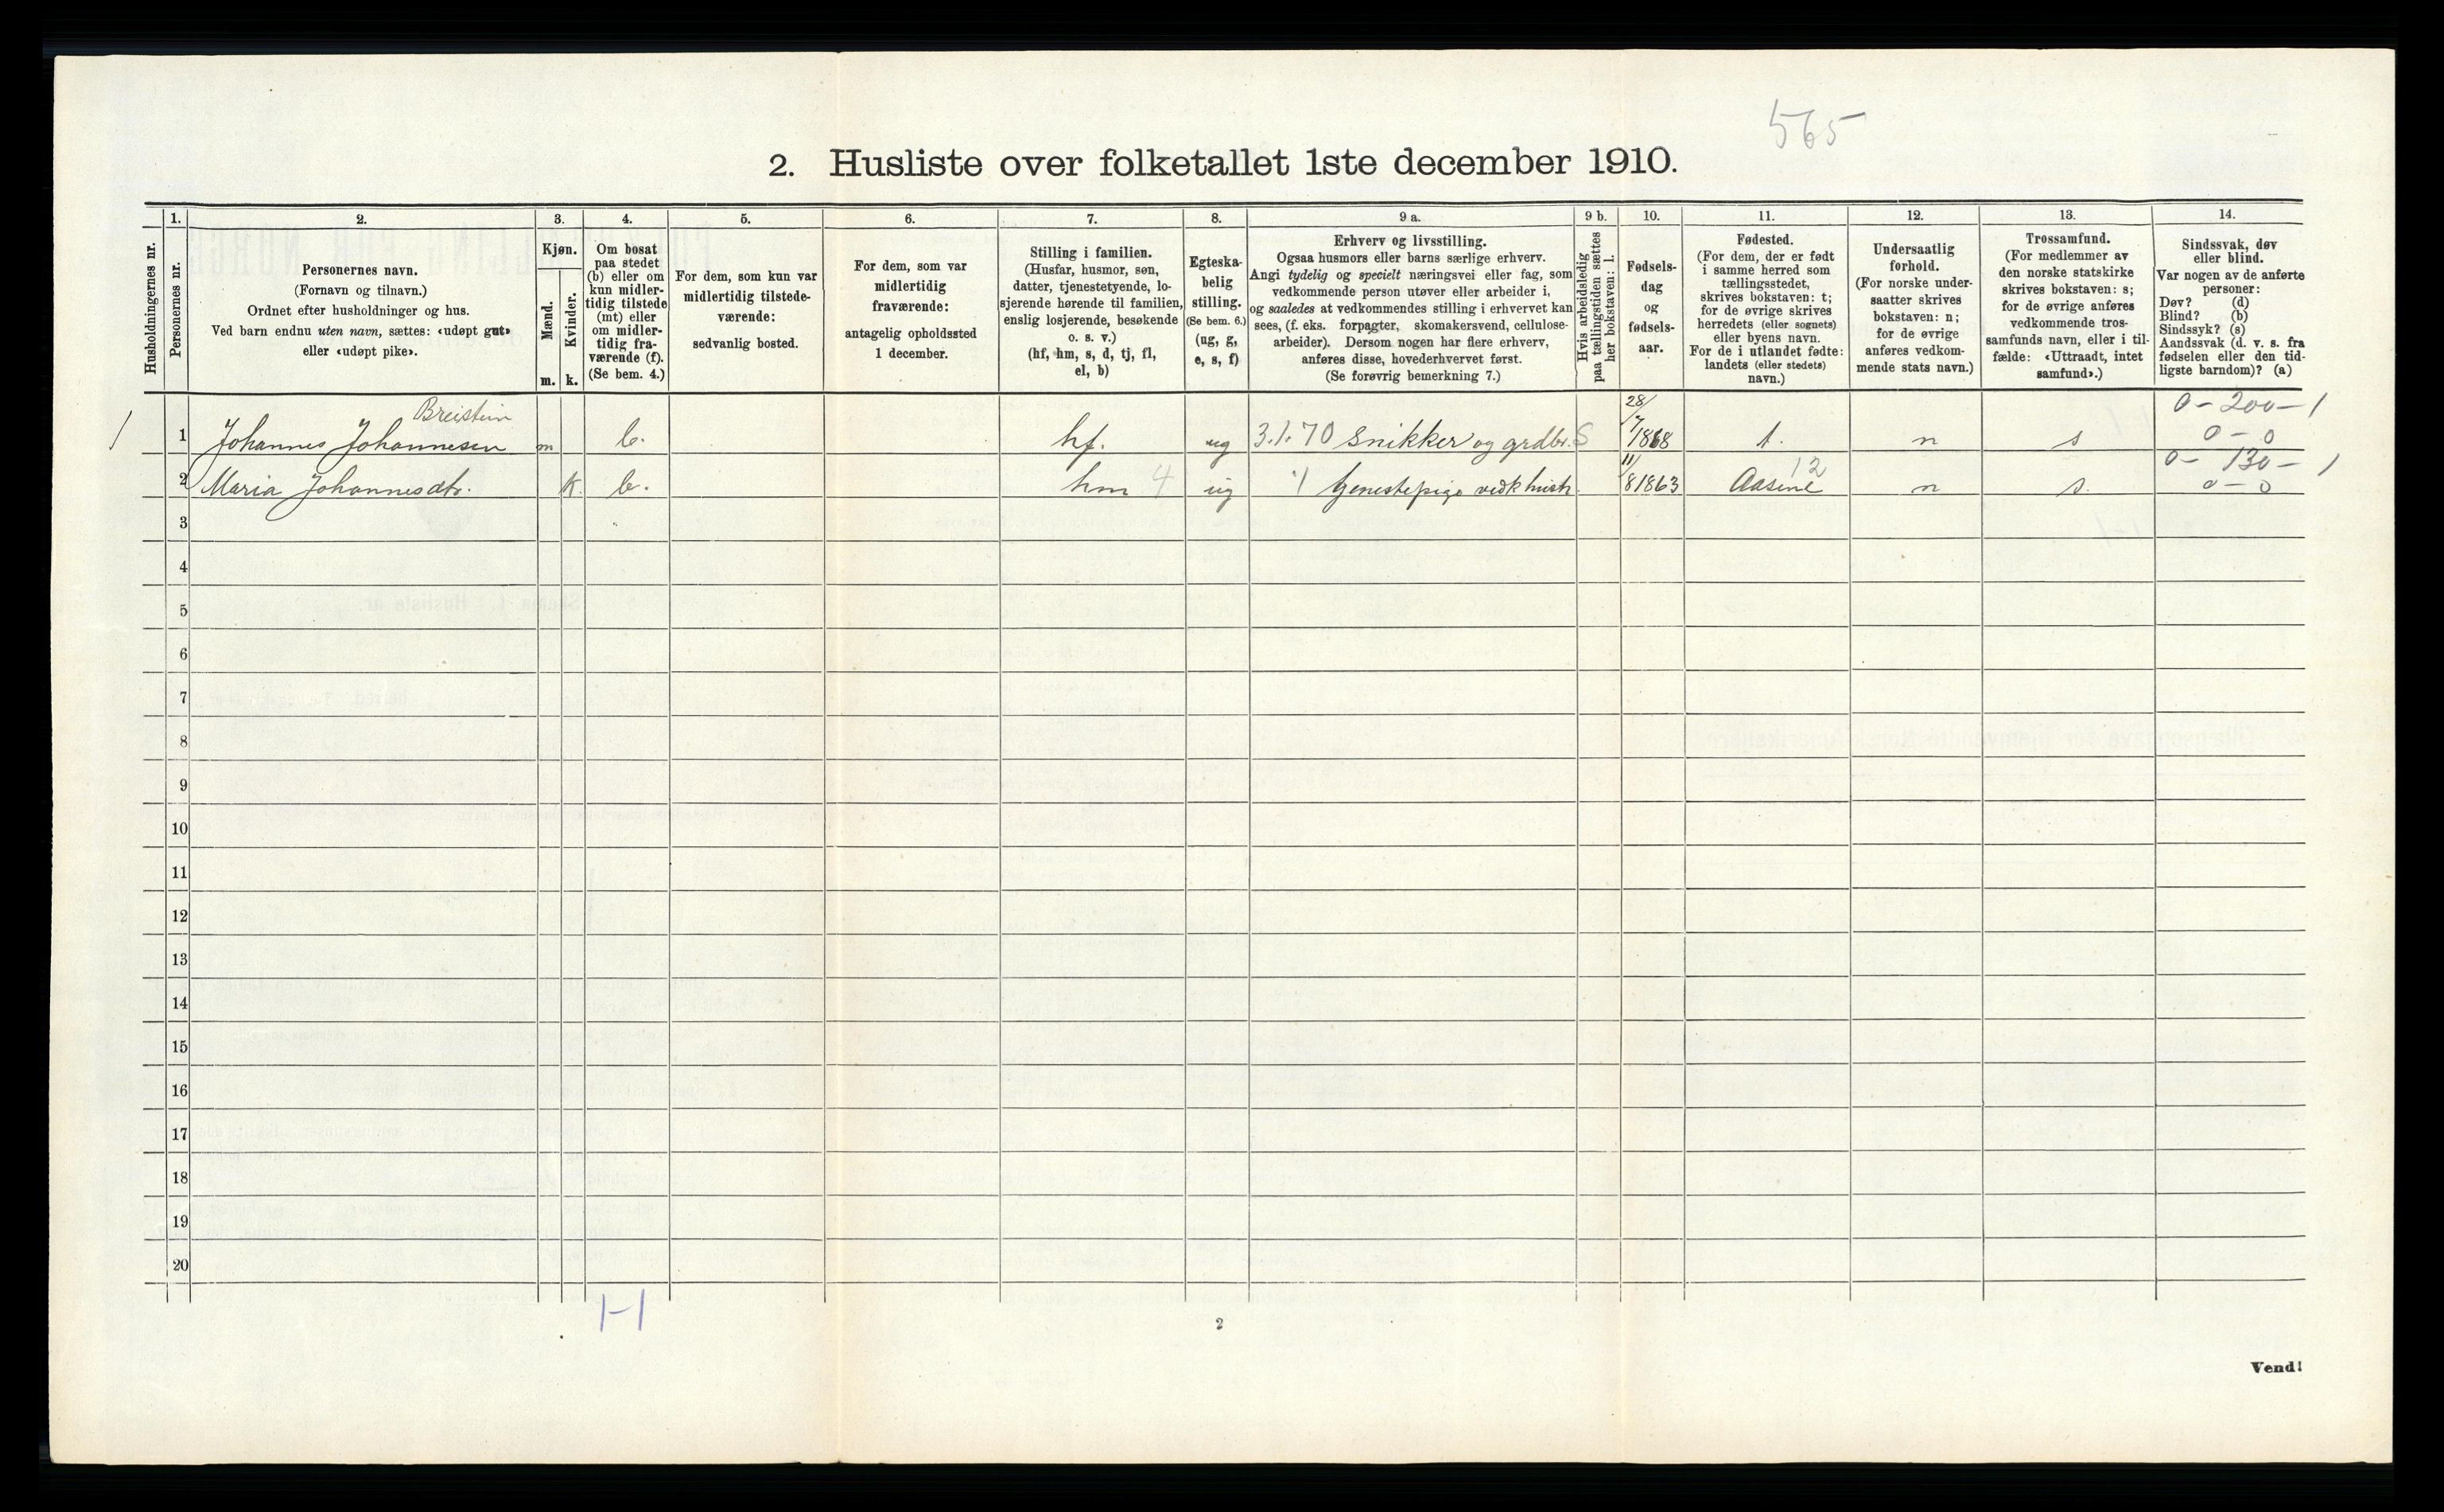 565
2. Husliste over folketallet 1ste december 1910.
1. 2. 3. 4. 5. 6. 7. 8. 9 a. 9 b. 10. 11. 12. 13. 14.
Husholdningernes nr.
Personernes nr.
Personernes navn.
(Fornavn og tilnavn.)
Ordnet efter husholdninger og hus.
Ved barn endnu uten navn, sættes: «udøpt gut»
eller «udøpt pike».
Kjøn.
Mænd.
Kvinder.
m. k.
Om bosat
paa stedet
(b) eller om
kun midler-
tidig tilstede
(mt) eller
om midler-
tidig fra-
værende (f).
(Se bem. 4.)
For dem, som kun var
midlertidig tilstede-
værende:
sedvanlig bosted.
For dem, som var
midlertidig
fraværende:
antagelig opholdssted
1 december.
Stilling i familien.
(Husfar, husmor, søn,
datter, tjenestetyende, lo-
sjerende hørende til familien,
enslig losjerende, besøkende
o. s. v.)
(hf, hm, s, d, tj, fl,
el, b)
Egteska-
belig
stilling.
(Se bem. 6.)
(ug, g,
e, s, f)
Erhverv og livsstilling.
Ogsaa husmors eller barns særlige erhverv.
Angi tydelig og specielt næringsvei eller fag, som
vedkommende person utøver eller arbeider i,
og saaledes at vedkommendes stilling i erhvervet kan
sees, (f. eks. forpagter, skomakersvend, cellulose-
arbeider). Dersom nogen har flere erhverv,
anføres disse, hovederhvervet først.
(Se forøvrig bemerkning 7.)
Hvis arbeidsledig
paa tællingstiden sættes
her bokstaven: l.
Fødsels-
dag
og
fødsels-
aar.
Fødested.
(For dem, der er født
i samme herred som
tællingsstedet,
skrives bokstaven: t;
for de øvrige skrives
herredets (eller sognets)
eller byens navn.
For de i utlandet fødte:
landets (eller stedets)
navn.)
Undersaatlig
forhold.
(For norske under-
saatter skrives
bokstaven: n;
for de øvrige
anføres vedkom-
mende stats navn.)
Trossamfund.
(For medlemmer av
den norske statskirke
skrives bokstaven: s;
for de øvrige anføres
vedkommende tros-
samfunds navn, eller i til-
fælde: «Uttraadt, intet
samfund».)
Sindssvak, døv
eller blind.
Var nogen av de anførte
personer:
Døv? (d)
Blind? (b)
Sindssyk? (s)
Aandssvak (d. v. s. fra
fødselen eller den tid-
ligste barndom)? (a)
Breistein 28/ 0-200-1
1 1 Johannes Johannesen m b. hf. ug 3.1.70 Snikker og grdbr. S 7 1868 t. n s 0-0
11/ 12 0-130-1
2 Maria Johannesdtr. k. b. hm 4 ug tjenestepige 8 1863 Aasene n s. 0-0
3
4
5
6
7
8
9
10
11
12
13
14
15
16
17
18
19
20
1-1
2
Vend!